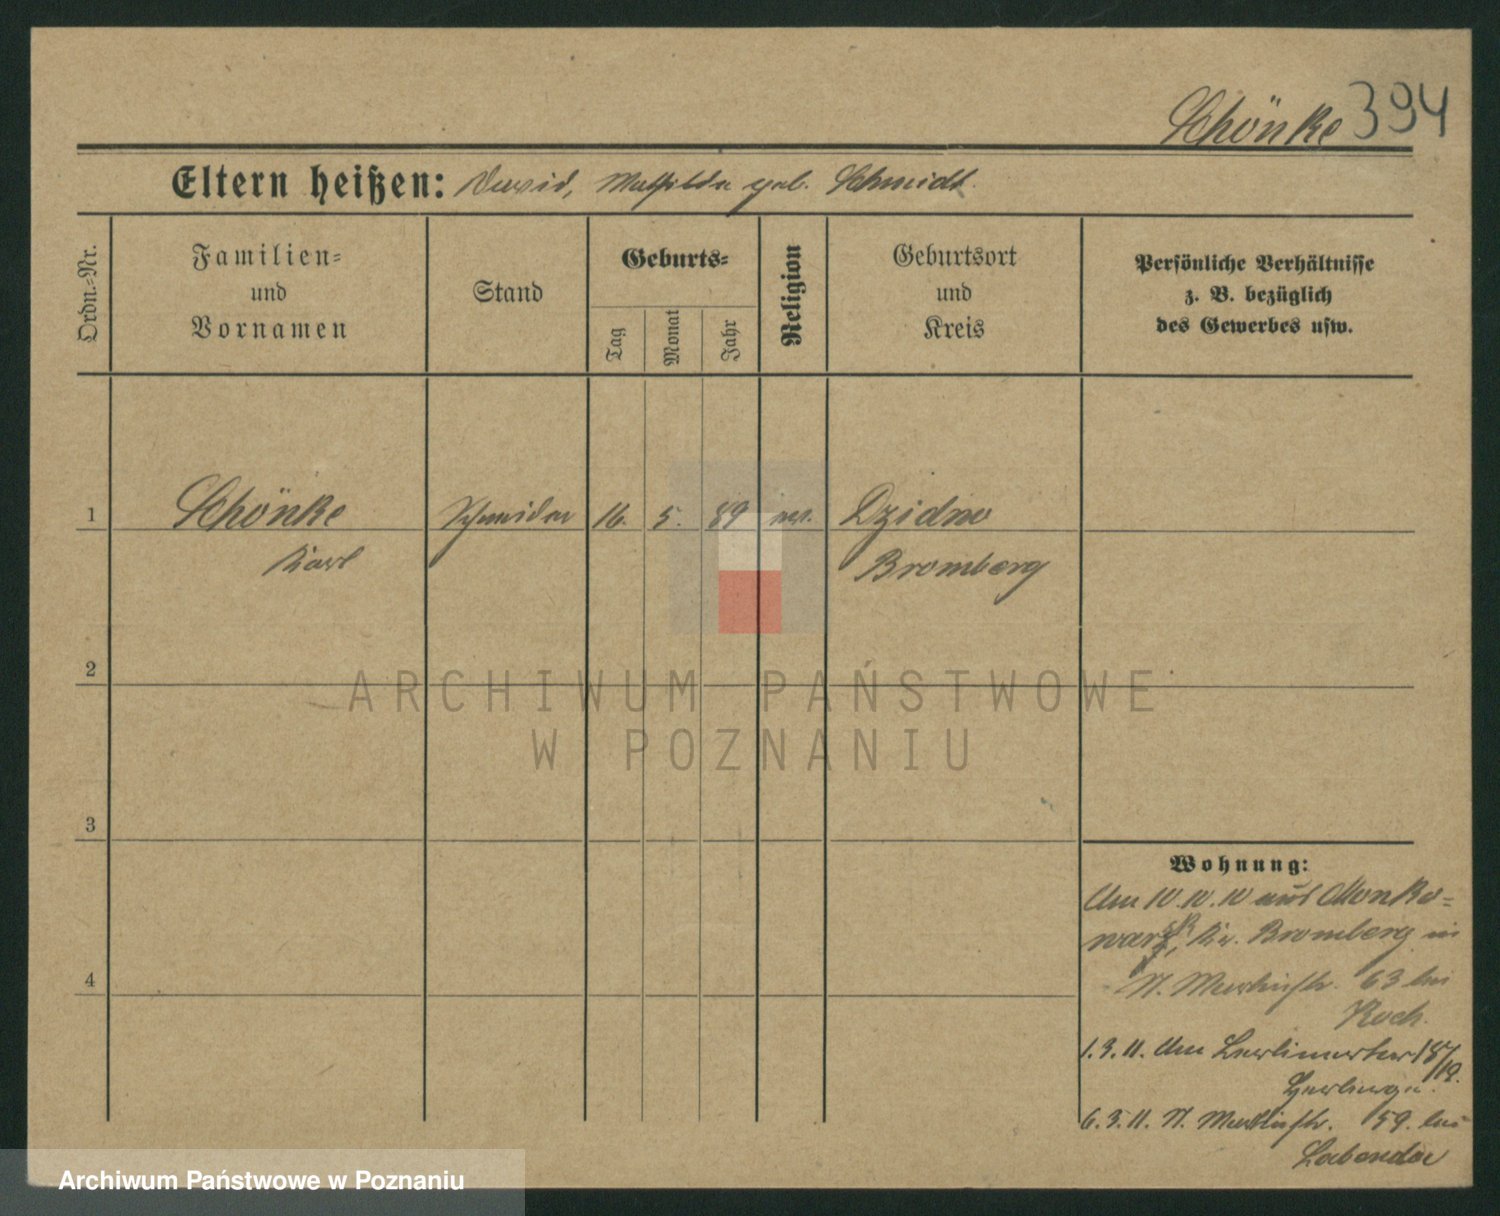 Schönke 394
Eltern heißen: David, Mathilde geb. Schmidt.
Ordn.-Nr.
Familien-
und
Vornamen
Stand
Geburts-
Tag
Monat
Jahr
Religion
Geburtsort
und
Kreis
Persönliche Verhältnisse
z. B. bezüglich
des Gewerbes usw.
1 Schönke Schneider 16. 5. 89 Dzidno
Karl Bromberg
2
3
4
Wohnung:
Am 10.10.10 aus Monko-
Kr. Bromberg in
N. 63 bei
Koch.
1.3.11. Am Berlinertor 18/19.
6.3.11. N. 59. bei
ARCHIWUM PAŃSTWOWE
W POZNANIU
Archiwum Państwowe w Poznaniu